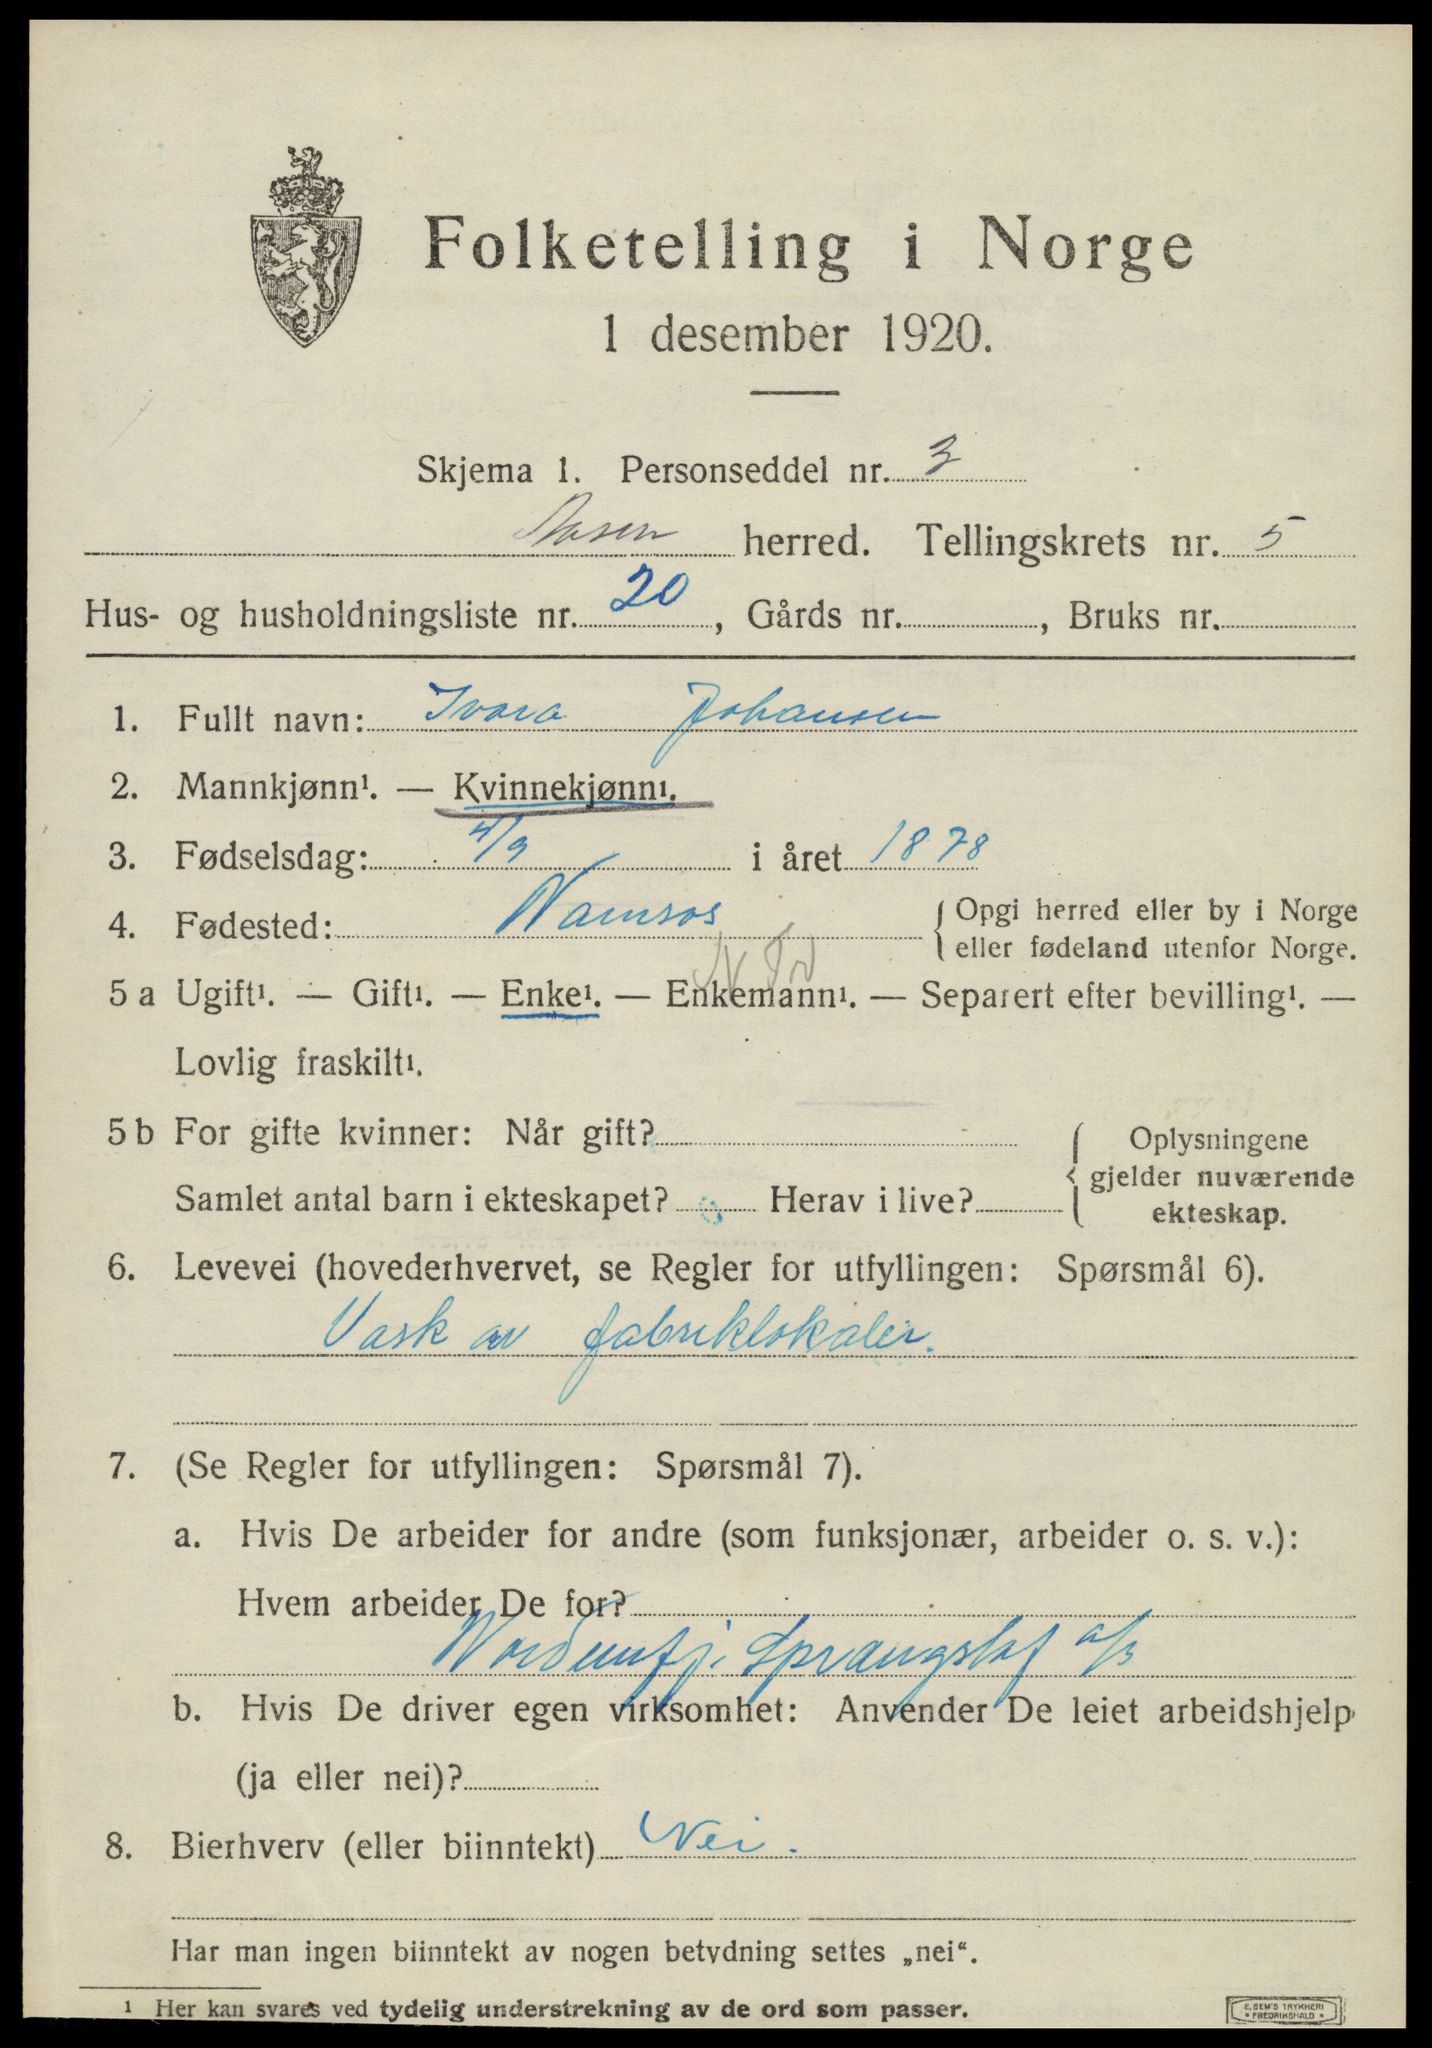 Folketelling i Norge
1 desember 1920.
Skjema 1. Personseddel nr. 3
Aasen herred. Tellingskrets nr. 5
Hus- og husholdningsliste nr. 20, Gårds nr. , Bruks nr.
1. Fullt navn: Ivara Johansen
2. Mannkjønn¹. — Kvinnekjønn¹.
3. Fødselsdag: 4/9 i året 1878
4. Fødested: Namsos { Opgi herred eller by i Norge
eller fødeland utenfor Norge.
N Tr
5 a Ugift¹. — Gift¹. — Enke¹. — Enkemann¹. — Separert efter bevilling¹. —
Lovlig fraskilt¹.
5 b For gifte kvinner: Når gift?
Samlet antal barn i ekteskapet? Herav i live?
{ Oplysningene
gjelder nuværende
ekteskap.
6. Levevei (hovederhvervet, se Regler for utfyllingen: Spørsmål 6).
Vask av fabriklokaler.
7. (Se Regler for utfyllingen: Spørsmål 7).
a. Hvis De arbeider for andre (som funksjonær, arbeider o. s. v.):
Hvem arbeider De for?
Nordenfj. Sprængstof a/s
b. Hvis De driver egen virksomhet: Anvender De leiet arbeidshjelp
(ja eller nei)?
8. Bierhverv (eller biinntekt) Nei.
Har man ingen biinntekt av nogen betydning settes „nei“.
¹ Her kan svares ved tydelig understrekning av de ord som passer.
E. SEM'S TRYKKERI
• FREDRIKSHALD •